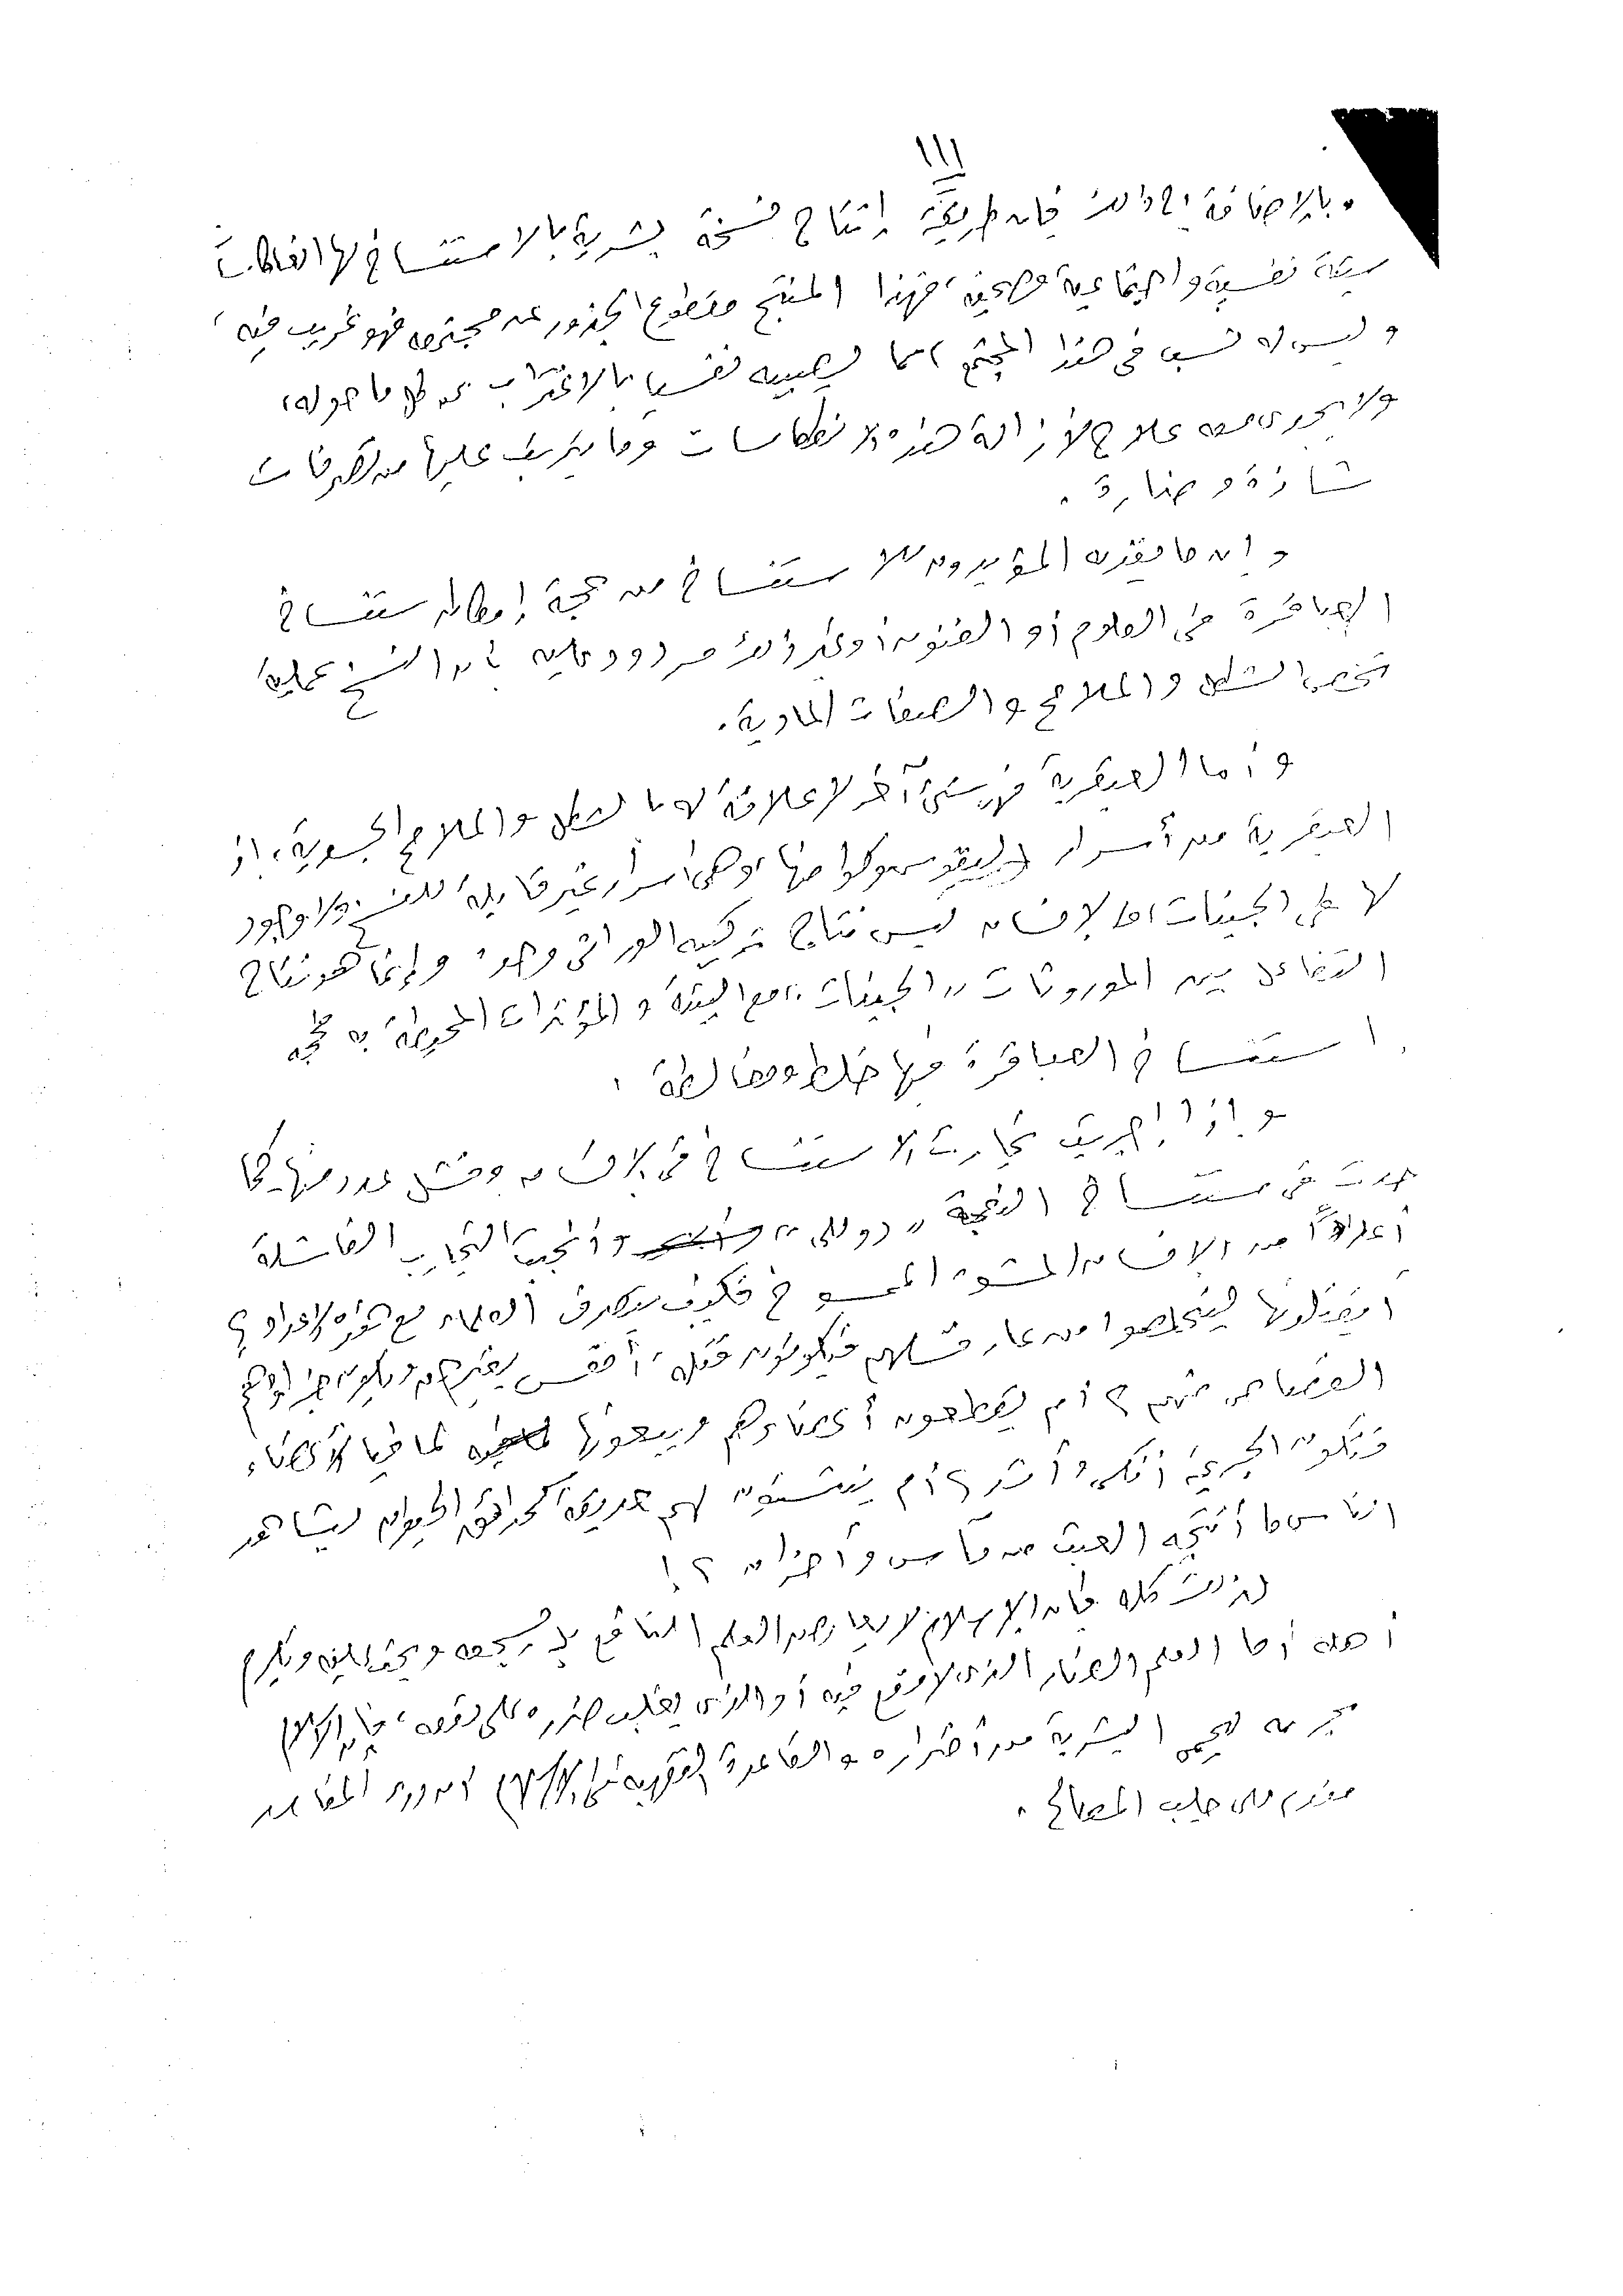 ١١١
وبالإضافة إلى ذلك فإن طريقة إنتاج نسخة بشرية بالاستنساخ لها انعكاسات
سيئة نفسية واجتماعية وصحية، فهذا المنتج مقطوع الجذور عن مجتمعه فهو غريب فيه،
وليس له نسب فى هذا المجتمع، مما يصيبه نفسيا بالاغتراب عن كل ما حوله،
ولا يجدى معه علاج لإزالة هذه الانعكاسات وما يترتب عليها من تصرفات
شاذة وضارة.
وإن ما يقدمه المؤيدون للاستنساخ من حجة إمكان استنساخ
العباقرة فى العلوم أو الفنون أو غير ذلك مردود عليه بأن النسخ عملية
تخص الشكل والملامح والصفات المادية.
وأما العبقرية فهى شئ آخر لا علاقة له بالشكل والملامح الجسدية، إذ
العبقرية من أسرار النفوس وكوامنها، وهى أسرار غير قابلة للنسخ ولا وجود
لها على الجينات، فالإنسان ليس نتاج تركيبه الوراثى وحده وإنما هو نتاج
التفاعل بين الموروثات "الجينات" مع البيئة والمؤثرات المحيطة به فحجة
استنساخ العباقرة فيها خلط ومغالطة.
وإذا أجريت تجارب الاستنساخ فى الإنسان وفشل عدد منها كما
حدث فى استنساخ النعجة "دوللى" وأنجبت التجارب الفاشلة
أعدادًا من الإنسان المشوه الممسوخ فكيف يتصرف العلماء مع هذه الأعداد؟
أيقتلونها ليتخلصوا من عار فشلهم فيكونون قتلة أنفس بغير حق ويكون جزاؤهم
القصاص منهم؟ أم يقطعون أعضاءهم ويبيعونها لمافيا الأعضاء
فتكون الجريمة أنكى وأشد؟ أم ينشئون لهم حديقة كحدائق الحيوان ليشاهد
الناس ما أنتجه العبث من مآس وأحزان؟!
لذلك كله فإن الإسلام لا يعارض العلم النافع بل يشجعه ويحث عليه ويكرم
أهله أما العلم الضار الذى لا نفع فيه أو الذى يغلب ضرره على نفعه، فإن الإسلام
يحرمه ليحمى البشرية من أضراره والقاعدة الفقهية فى الإسلام أن درء المفاسد
مقدم على جلب المصالح.